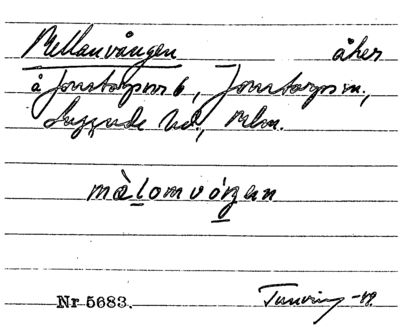 Mellanvången åker
å Jonstorps nr 6, Jonstorps sn.,
Luggude hd., Mlm.
màlomvóŋan
Nr 5683.